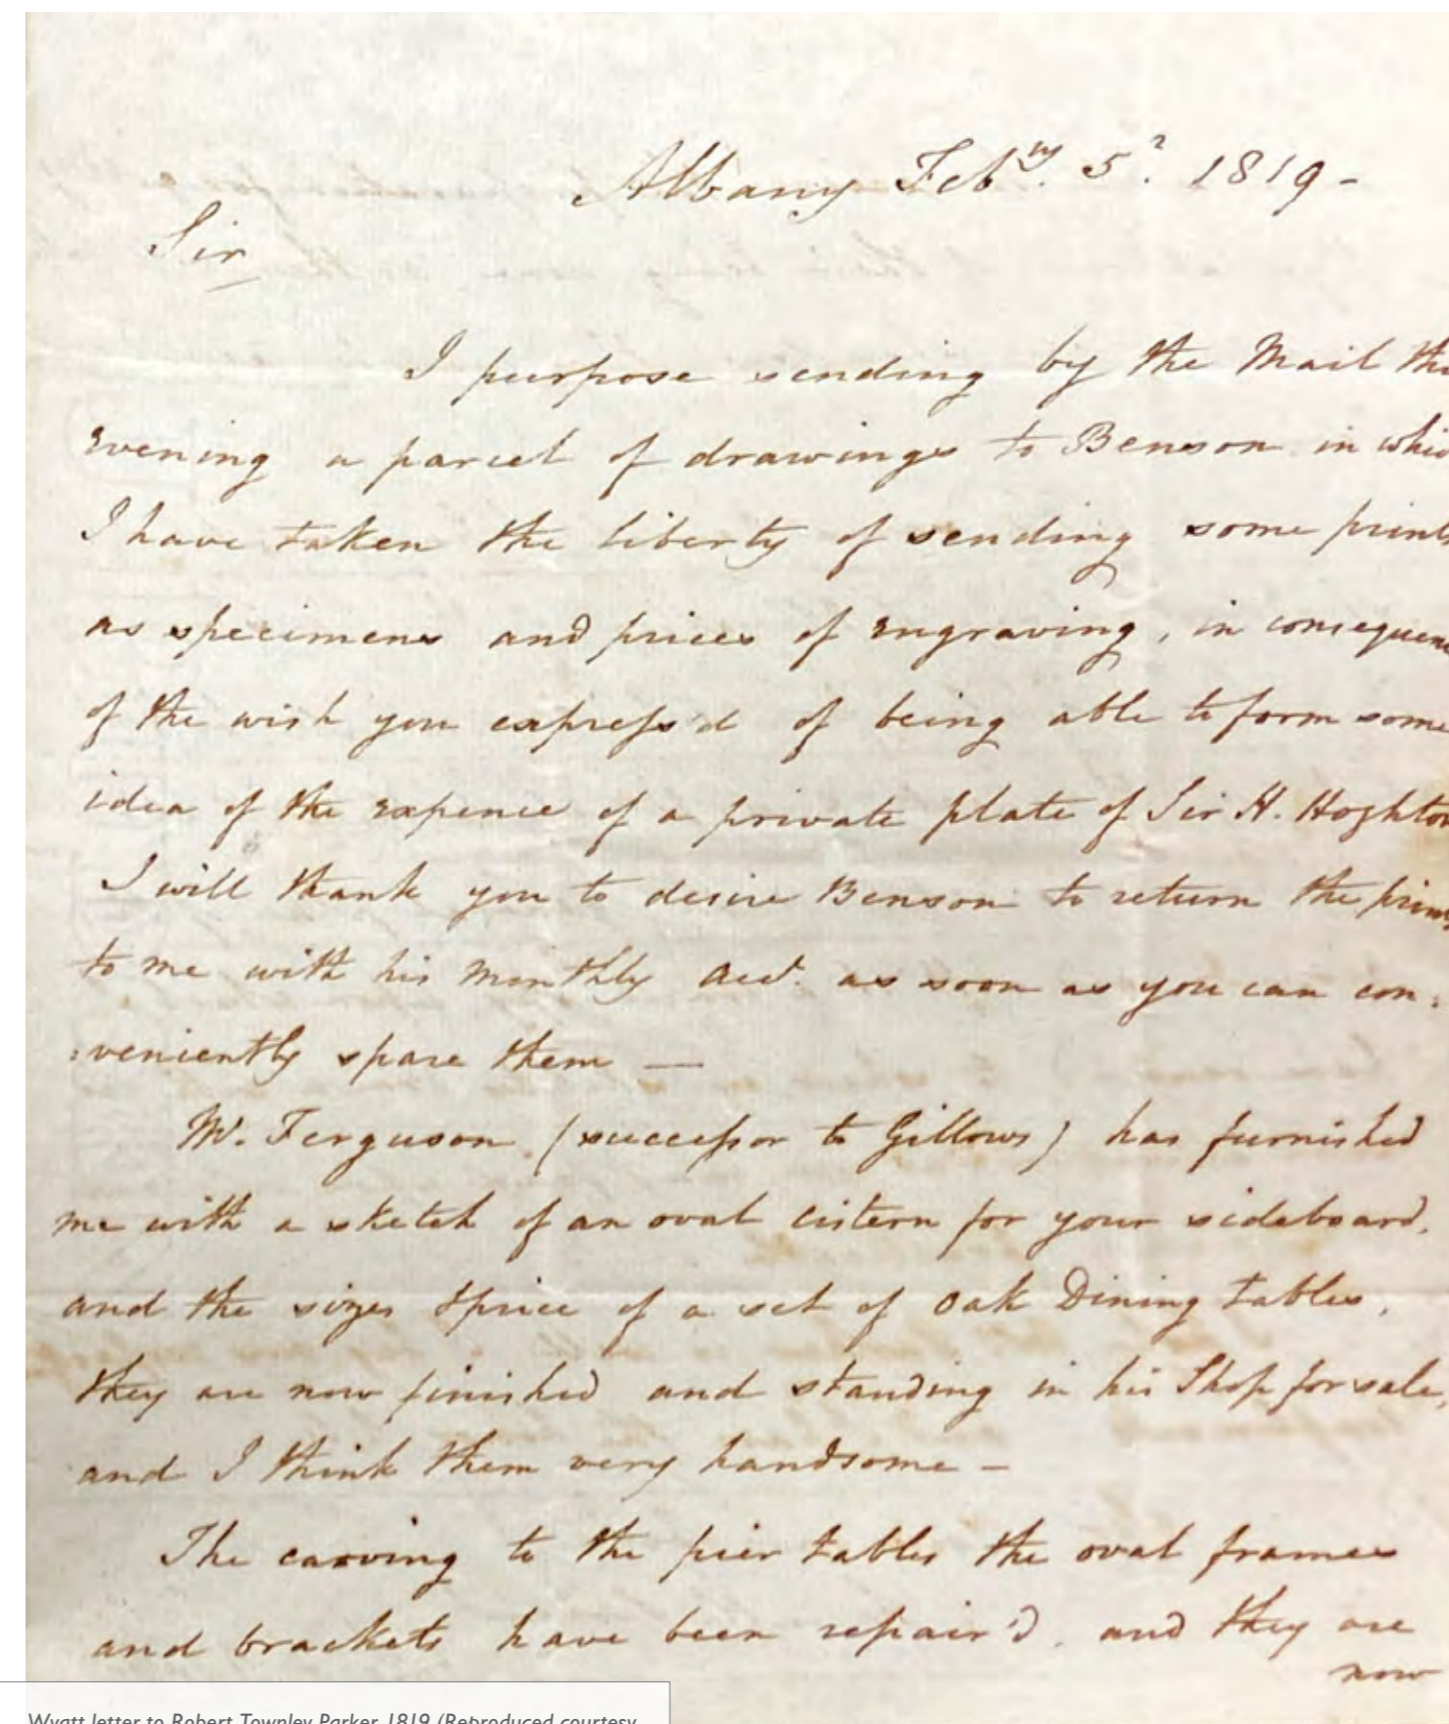 Albany Febry. 5th. 1819 -
Sir
I purpose sending by the Mail thi
evening a parcel of drawings to Benson in whic
I have taken the liberty of sending some prints
as specimens and prices of engraving, in consequen
of the wish you express'd of being able to form some
idea of the expence of a private plate of Sir H. Hoghton
I will thank you to desire Benson to return the prints
to me with his monthly acct. as soon as you can con:
:veniently spare them —
Mr. Ferguson (successor to Gillows) has furnished
me with a sketch of an oval cistern for your sideboard.
and the sizes & price of a set of Oak Dining tables,
they are now finished and standing in his Shop for sale,
and I think them very handsome -
The carving to the pier tables the oval frames
and brackets have been repair'd. and they are
now
Wyatt letter to Robert Townley Parker 1819 (Reproduced courtesy